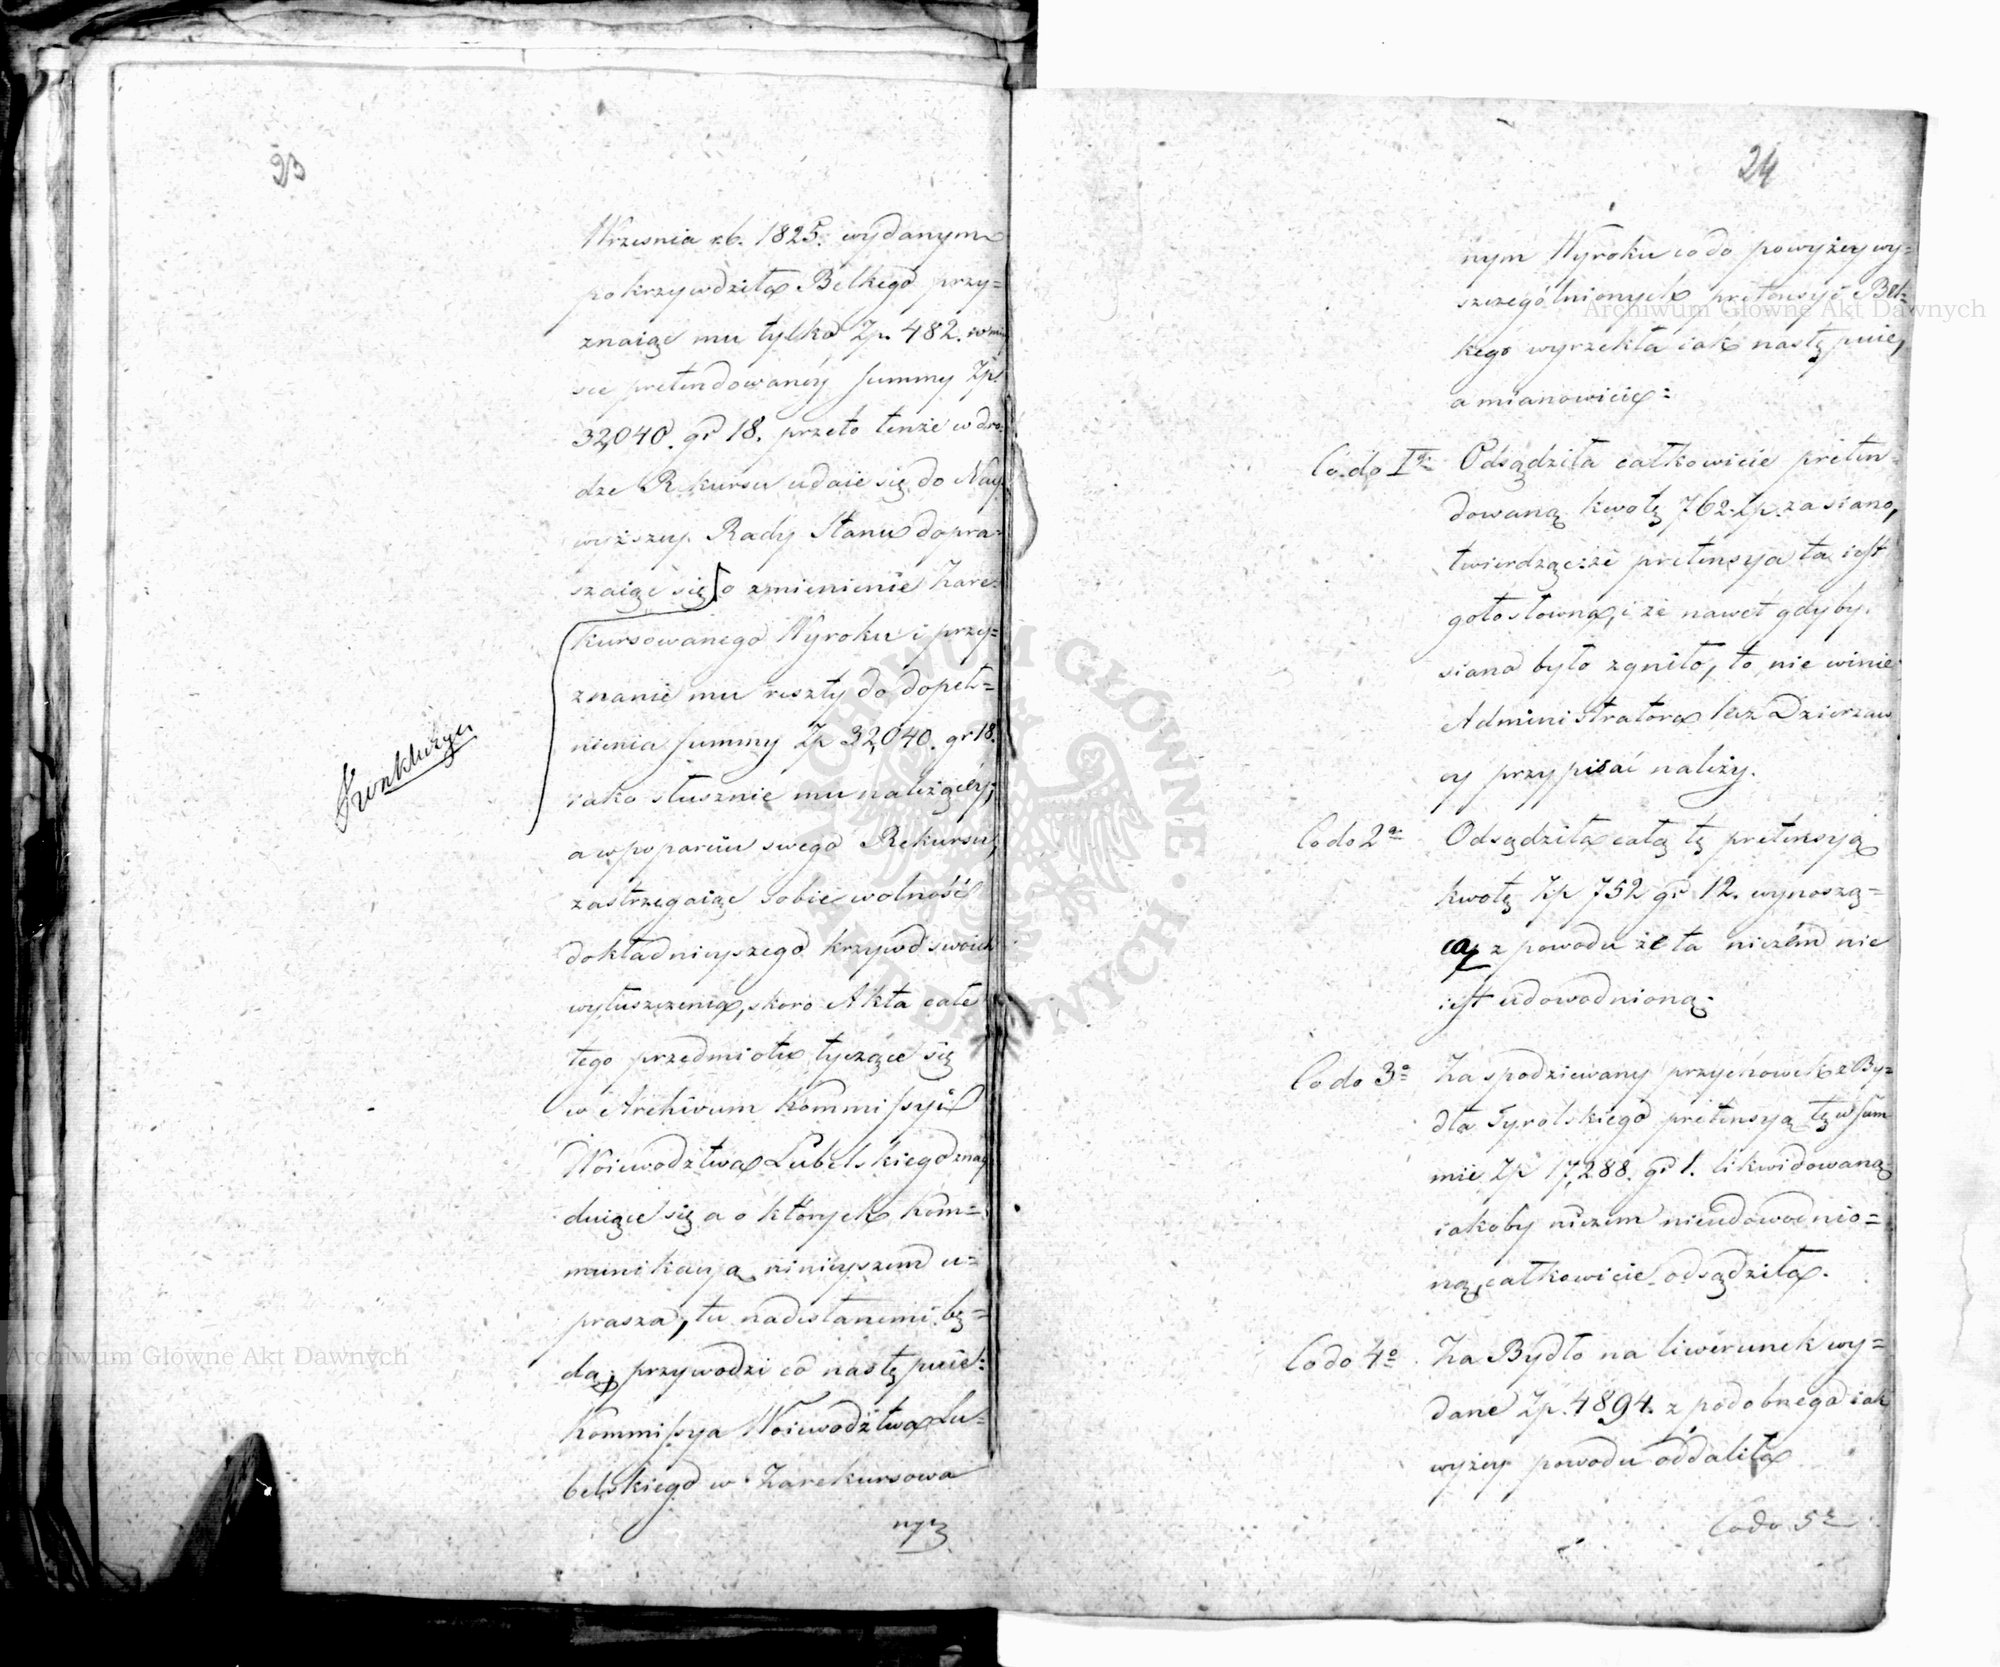 23
Wrzesnia rb. 1825. wydanym
pokrzywdziła Belkego przy=
znaiąc mu tylko Zp. 482. w miey
sce pretendowanéy summy Zp.
32,040. gr 18. przeto tenże w dro-
dze Rekursu udaie się do Nay
wyższey Rady Stanu dopra-
szaiąc się o zmienienie Zare-
kursowanego Wyroku i przy=
znanie mu reszty do dopeł=
nienia summy Zp 32,040. gr 18.
iako słusznie mu należącéy;
a w poparciu swego Rekursu,
zastrzegaiąc sobie wolność
dokładnieyszego krzywd swoich
wyłuszczenia, skoro Akta całe
tego przedmiotu tyczące się
w Archivum Kommissyi
Woiewodztwa Lubelskiego znay
duiące się a o których kom=
munikacyą ninieyszem u=
prasza, tu nadesłanemi bę=
dą; przywodzi co następuie:
Kommissya Woiewodztwa Lu=
belskiego w Zarekursowa
nym
24
nym Wyroku co do powyżey wy=
szczególnionych pretensyi Bel=
kego wyrzekła iak następuie,
a mianowicie:
Co do 1o Odsądziła całkowicie preten=
dowaną kwotę 762 Zp. za siano,
twierdząc: że pretensya ta iest
gołosłowną, i że nawet gdyby
siano było zgniło, to nie winie
Administratora lecz Dzierzaw
cy przypisać należy.
Co do 2o Odsądziła całą tę pretensyą
kwotę Zp 752 gr 12. wynoszą=
cą z powodu że ta niczém nie
iest udowodnioną.
Co do 3o Za spodziewany przychowek z By=
dła Tyrolskiego pretensyą tę w sum
mie Zp 17,288. gr 1. likwidowaną
iakoby niczem nieudowodnio=
ną, całkowicie odsądziła.
Co do 4o Za Bydło na liwerunek wy=
dane Zp. 4894. z podobnego iak
wyżey powodu oddaliła
Co do 5o
Archiwum Główne Akt Dawnych
Archiwum Główne Akt Dawnych
ARCHIWUM GŁÓWNE AKT DAWNYCH